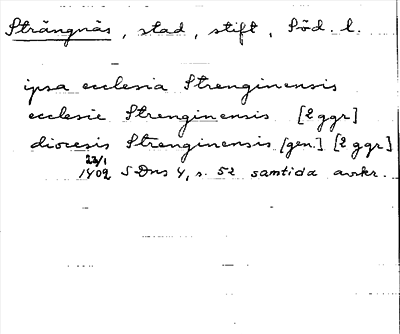 Strängnäs, stad, stift, Söd. l.
ipsa ecclesia Strenginensis
ecclesie Strenginensis [2 ggr]
diocesis Strenginensis [gen.] [2 ggr]
22/1
1402 SDns 1, s. 52 samtida avskr.